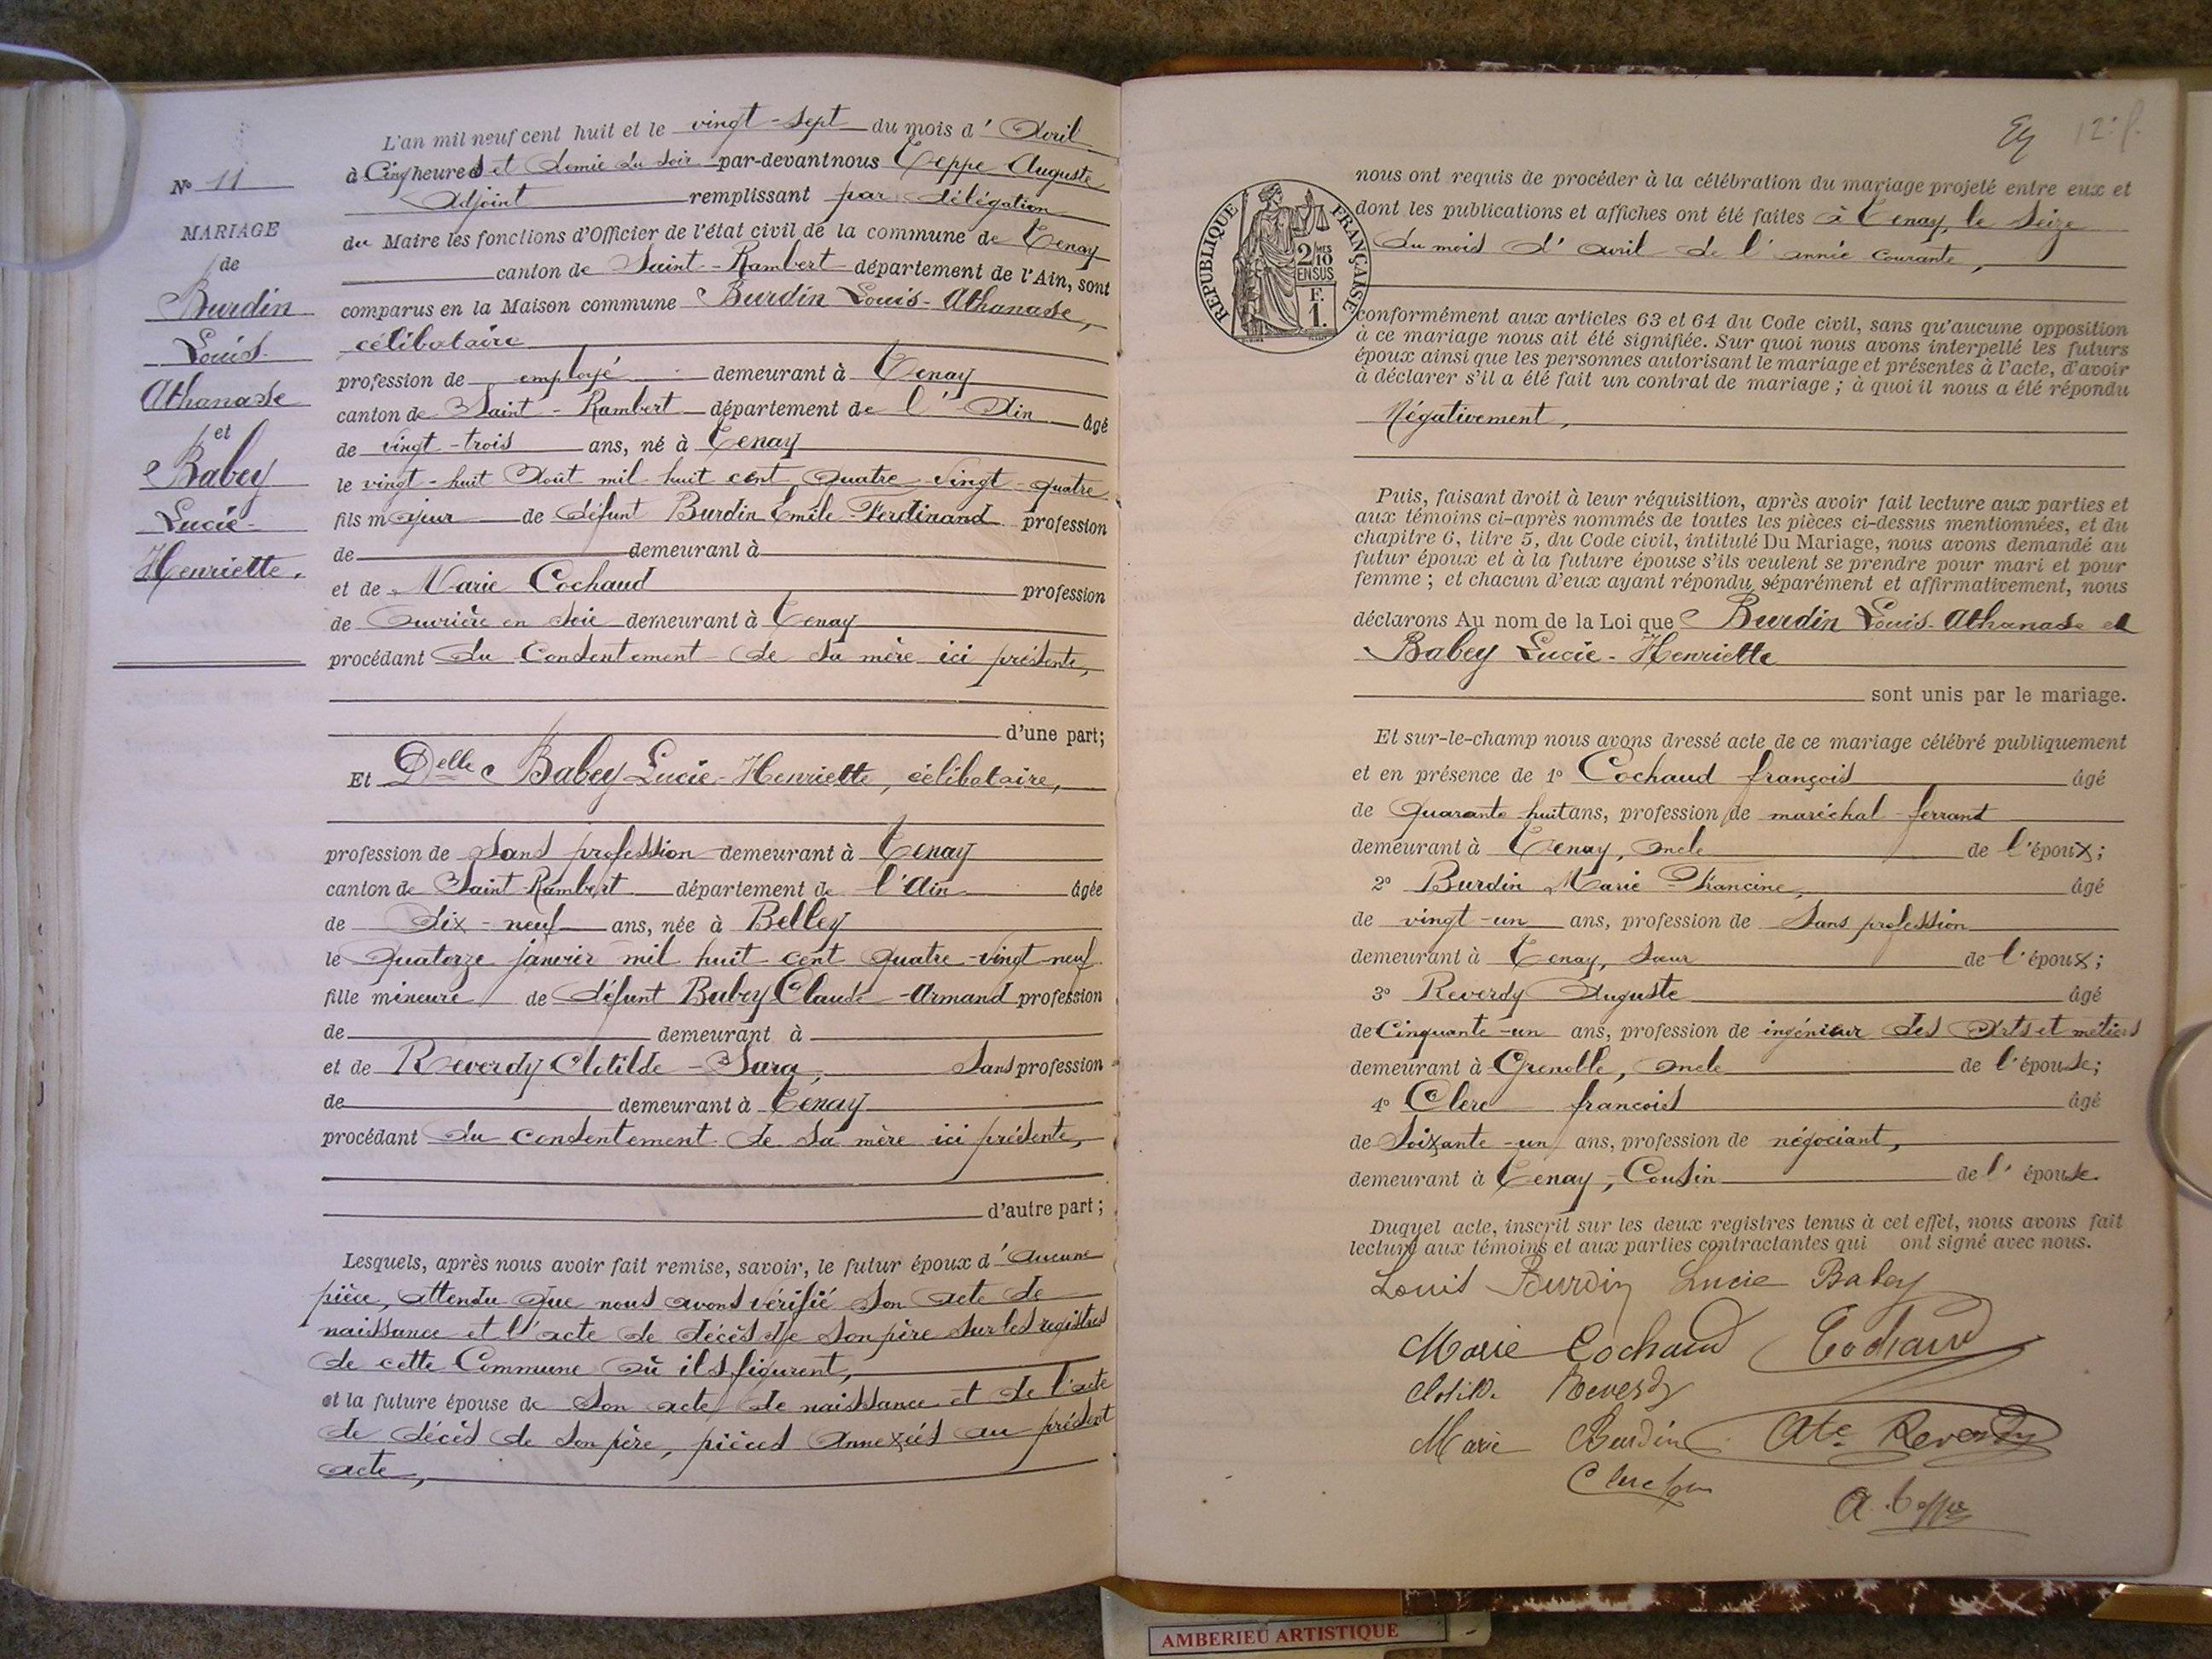 N° 11
MARIAGE
de
Burdin
Louis
Athanase
et
Babey
Lucie-
Henriette.
L'an mil neuf cent huit et le vingt-sept du mois d'Avril
à Cinq heures et demie du soir par-devant nous Teppe Auguste
Adjoint remplissant par délégation
du Maire les fonctions d'Officier de l'état civil de la commune de Tenay
canton de Saint-Rambert département de l'Ain, sont
comparus en la Maison commune Burdin Louis-Athanase,
célibataire
profession de employé demeurant à Tenay
canton de Saint-Rambert département de l'Ain âgé
de vingt-trois ans, né à Tenay
le vingt-huit Août mil huit cent quatre-vingt-quatre
fils majeur de défunt Burdin Emile-Ferdinand profession
de demeurant à
et de Marie Cochaud profession
de Ouvrière en soie demeurant à Tenay
procédant du Consentement de sa mère ici présente,
d'une part;
Et Delle Babey Lucie-Henriette, célibataire,
profession de sans profession demeurant à Tenay
canton de Saint-Rambert département de l'Ain âgée
de Dix-neuf ans, née à Belley
le quatorze janvier mil huit cent quatre-vingt neuf
fille mineure de défunt Babey Claude-Armand profession
de demeurant à
et de Reverdy Clotilde-Sara, Sans profession
de demeurant à Tenay
procédant du consentement de sa mère ici présente,
d'autre part;
Lesquels, après nous avoir fait remise, savoir, le futur époux d'aucune
pièce, attendu que nous avons vérifié son acte de
naissance et l'acte de décès de son père sur les registres
de cette Commune où ils figurent,
et la future épouse de son acte de naissance et de l'acte
de décès de son père, pièces annexées au présent
acte,
12
RÉPUBLIQUE FRANÇAISE
2/10 MES
EN SUS
F.
1.
nous ont requis de procéder à la célébration du mariage projeté entre eux et
dont les publications et affiches ont été faites à Tenay, le seize
du mois d'avril de l'année courante,
conformément aux articles 63 et 64 du Code civil, sans qu'aucune opposition
à ce mariage nous ait été signifiée. Sur quoi nous avons interpellé les futurs
époux ainsi que les personnes autorisant le mariage et présentes à l'acte, d'avoir
à déclarer s'il a été fait un contrat de mariage; à quoi il nous a été répondu
Négativement,
Puis, faisant droit à leur réquisition, après avoir fait lecture aux parties et
aux témoins ci-après nommés de toutes les pièces ci-dessus mentionnées, et du
chapitre 6, titre 5, du Code civil, intitulé Du Mariage, nous avons demandé au
futur époux et à la future épouse s'ils veulent se prendre pour mari et pour
femme; et chacun d'eux ayant répondu séparément et affirmativement, nous
déclarons Au nom de la Loi que Burdin Louis-Athanase et
Babey Lucie-Henriette
sont unis par le mariage.
Et sur-le-champ nous avons dressé acte de ce mariage célébré publiquement
et en présence de 1° Cochaud françois âgé
de quarante-huit ans, profession de maréchal-ferrant
demeurant à Tenay, oncle de l'époux;
2° Burdin Marie-Francine, âgé
de vingt-un ans, profession de Sans profession
demeurant à Tenay, sœur de l'époux;
3° Reverdy Auguste âgé
de Cinquante-un ans, profession de ingénieur des Arts et métiers
demeurant à Grenoble, oncle de l'épouse;
4° Clerc francois âgé
de Soixante-un ans, profession de négociant,
demeurant à Tenay, Cousin de l'épouse.
Duquel acte, inscrit sur les deux registres tenus à cet effet, nous avons fait
lecture aux témoins et aux parties contractantes qui ont signé avec nous.
Louis Burdin Lucie Babey
Marie Cochaud Cochaud
Clotilde Reverdy
Marie Burdin Ate Reverdy
Clerc
A. Teppe
AMBERIEU ARTISTIQUE